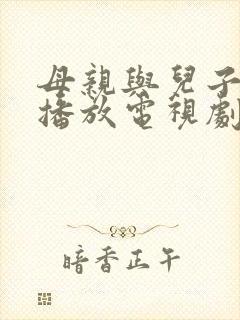 母親與兒子
播放電視劇
暗香正午